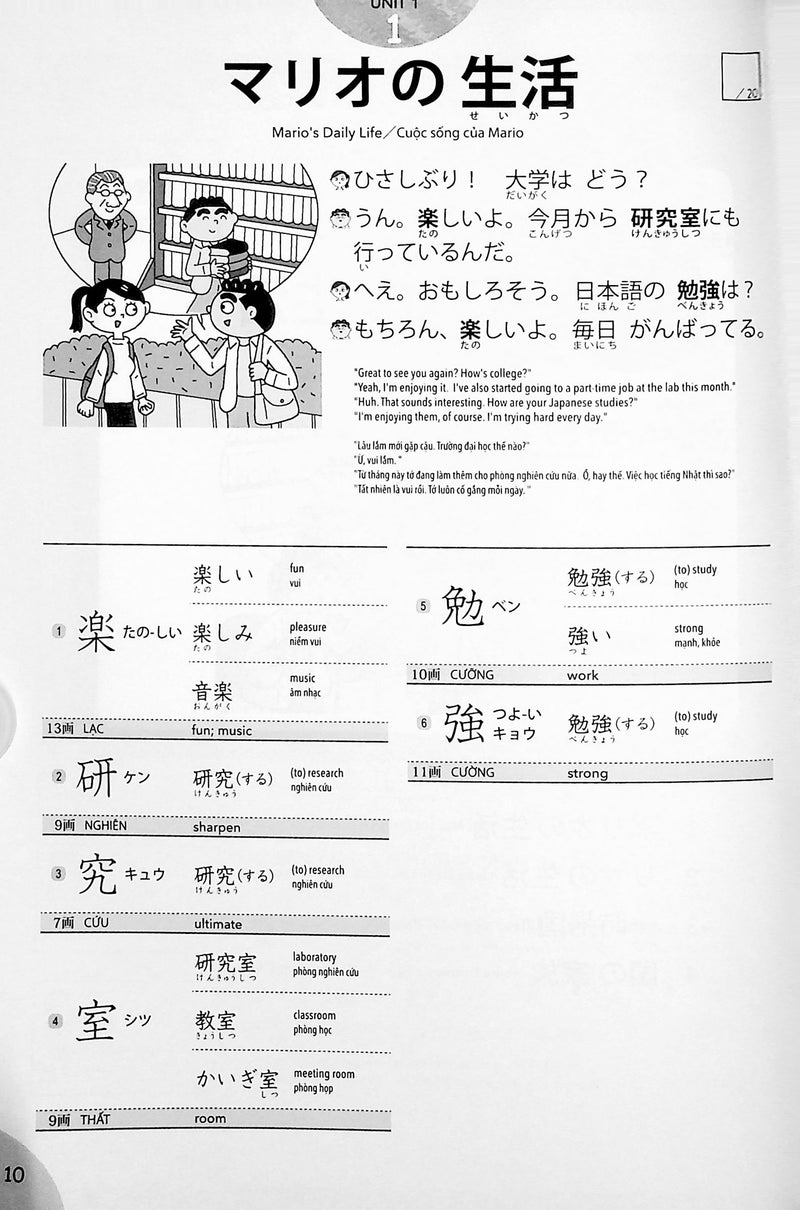 UNIT 1
1
マリオの生活
せいかつ
/20
Mario's Daily Life／Cuộc sống của Mario
ひさしぶり！ 大学は どう？
だいがく
うん。楽しいよ。今月から 研究室にも
たの こんげつ けんきゅうしつ
行っているんだ。
い
へえ。おもしろそう。日本語の 勉強は？
にほんご べんきょう
もちろん、楽しいよ。毎日 がんばってる。
たの まいにち
"Great to see you again? How's college?"
"Yeah, I'm enjoying it. I've also started going to a part-time job at the lab this month."
"Huh. That sounds interesting. How are your Japanese studies?"
"I'm enjoying them, of course. I'm trying hard every day."
"Lâu lắm mới gặp cậu. Trường đại học thế nào?"
"Ừ, vui lắm. "
"Từ tháng này tớ đang làm thêm cho phòng nghiên cứu nữa. Ồ, hay thế. Việc học tiếng Nhật thì sao?"
"Tất nhiên là vui rồi. Tớ luôn cố gắng mỗi ngày. "
1 楽 たの-しい
楽しい fun
たの vui
楽しみ pleasure
たの niềm vui
音楽 music
おんがく âm nhạc
13画 LẠC fun; music
2 研 ケン 研究(する) (to) research
けんきゅう nghiên cứu
9画 NGHIÊN sharpen
3 究 キュウ 研究(する) (to) research
けんきゅう nghiên cứu
7画 CỨU ultimate
4 室 シツ
研究室 laboratory
けんきゅうしつ phòng nghiên cứu
教室 classroom
きょうしつ phòng học
かいぎ室 meeting room
しつ phòng họp
9画 THẤT room
5 勉 ベン
勉強(する) (to) study
べんきょう học
強い strong
つよ mạnh, khỏe
10画 CƯỜNG work
6 強 つよ-い キョウ
勉強(する) (to) study
べんきょう học
11画 CƯỜNG strong
10